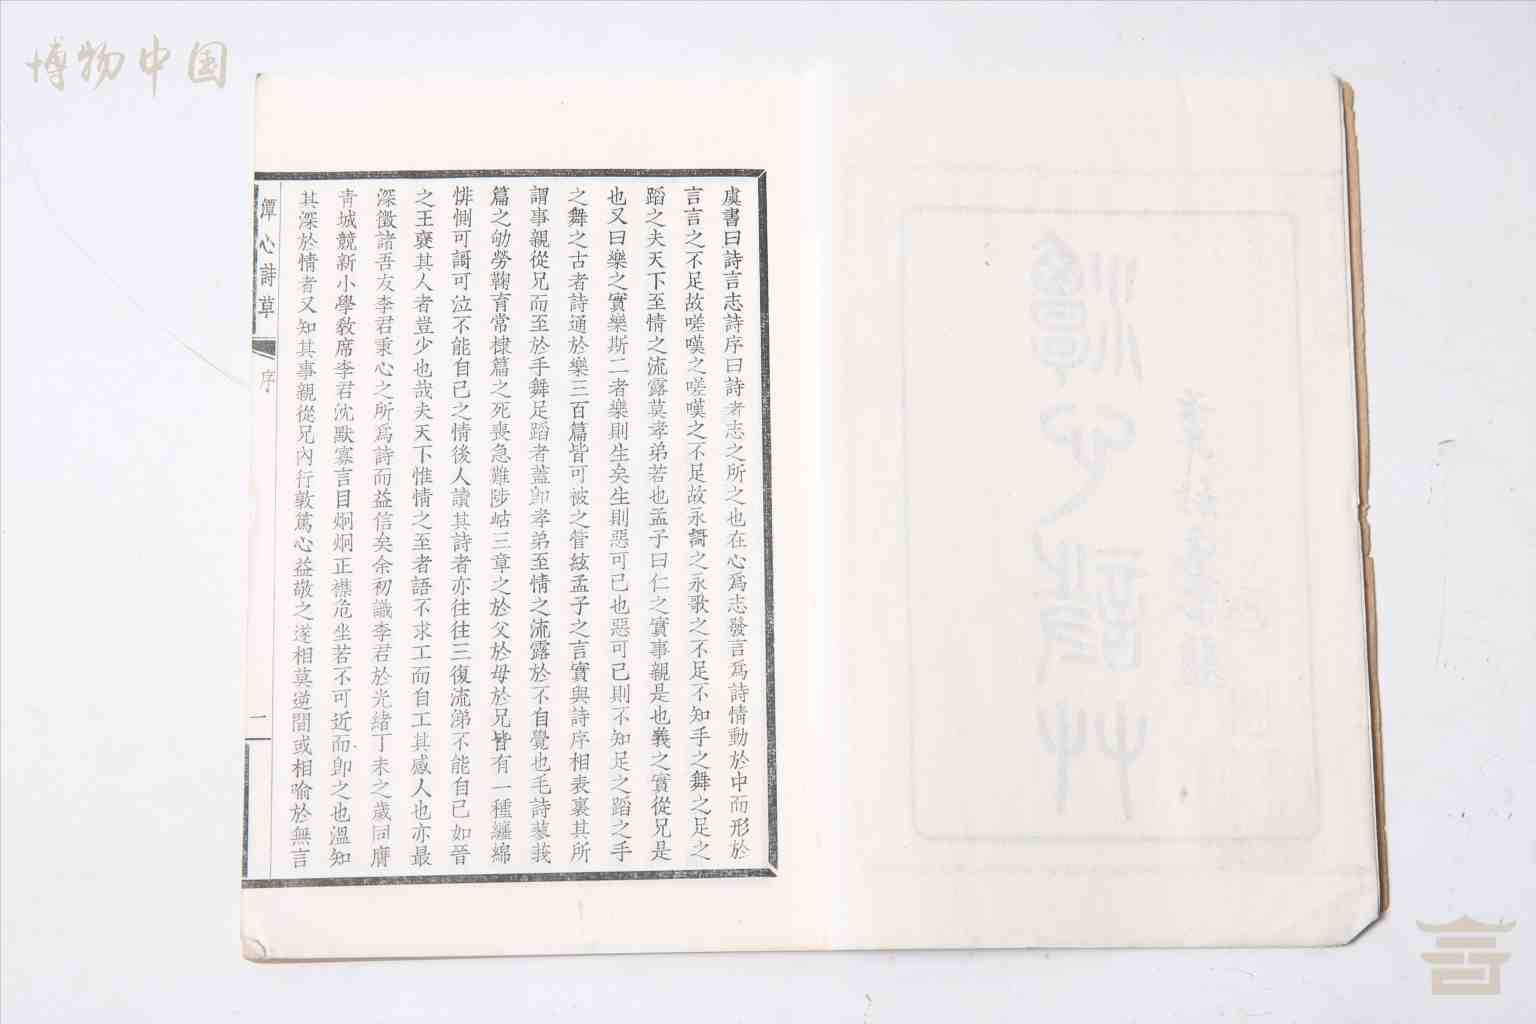 博物中国
虞書曰詩言志詩序曰詩者志之所之也在心爲志發言爲詩情動於中而形於
言言之不足故嗟嘆之嗟嘆之不足故永謌之永歌之不足不知手之舞之足之
蹈之夫天下至情之流露莫孝弟若也孟子曰仁之實事親是也義之實從兄是
也又曰樂之實樂斯二者樂則生矣生則惡可已也惡可已則不知足之蹈之手
之舞之古者詩通於樂三百篇皆可被之管絃孟子之言實與詩序相表裏其所
謂事親從兄而至於手舞足蹈者蓋卽孝弟至情之流露於不自覺也毛詩蓼莪
篇之劬勞鞠育常棣篇之死喪急難陟岵三章之於父於母於兄皆有一種纏綿
悱惻可謌可泣不能自已之情後人讀其詩者亦往往三復流涕不能自已如晉
之王裒其人者豈少也哉夫天下惟情之至者語不求工而自工其感人也亦最
深徵諸吾友李君秉心之所爲詩而益信矣余初識李君於光緒丁未之歲同膺
青城競新小學敎席李君沈默寡言目炯炯正襟危坐若不可近而卽之也溫知
其深於情者又知其事親從兄內行敦篤心益敬之遂相莫逆間或相喻於無言
潭心詩草
序
一